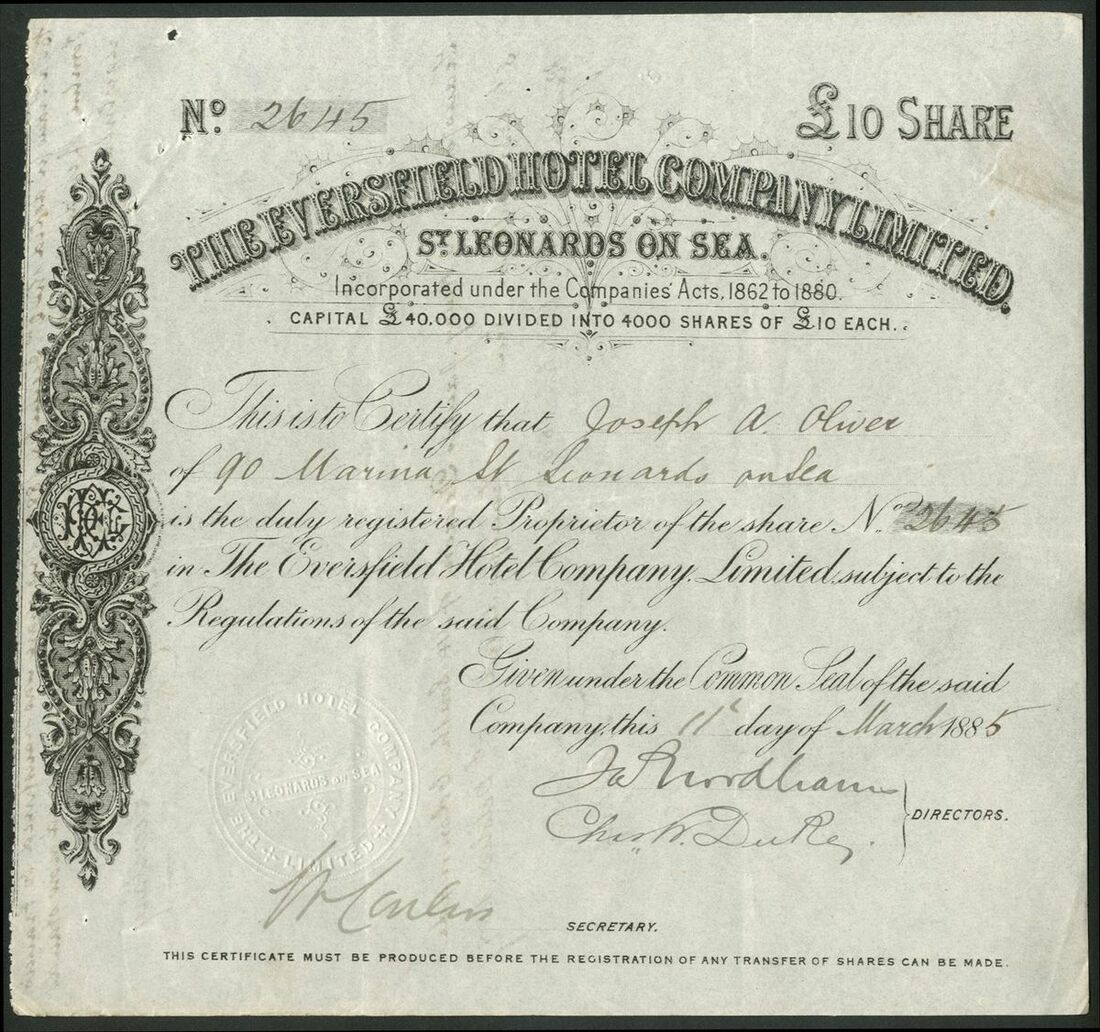 No. 2645
£10 SHARE
THE EVERSFIELD HOTEL COMPANY LIMITED.
ST. LEONARDS ON SEA.
Incorporated under the Companies' Acts, 1862 to 1880.
CAPITAL £40,000 DIVIDED INTO 4000 SHARES OF £10 EACH.
This is to Certify that Joseph A. Oliver
of 90 Marina St Leonards on Sea
is the duly registered Proprietor of the share No. 2645
in The Eversfield Hotel Company, Limited, subject to the
Regulations of the said Company.
Given under the Common Seal of the said
Company, this 11th day of March 1885
Chas. W. Duke
DIRECTORS.
THE EVERSFIELD HOTEL COMPANY LIMITED
ST LEONARDS ON SEA
SECRETARY.
THIS CERTIFICATE MUST BE PRODUCED BEFORE THE REGISTRATION OF ANY TRANSFER OF SHARES CAN BE MADE.